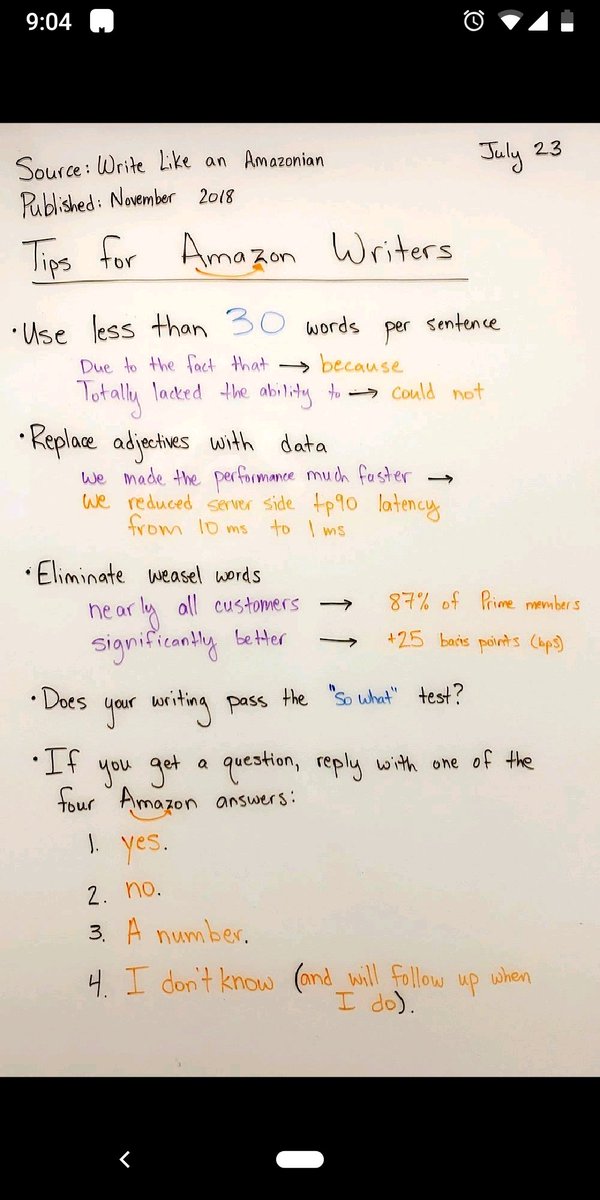 9:04
Source: Write Like an Amazonian
July 23
Published: November 2018
Tips for Amazon Writers
• Use less than 30 words per sentence
Due to the fact that → because
Totally lacked the ability to → could not
• Replace adjectives with data
We made the performance much faster →
We reduced server side tp90 latency
from 10 ms to 1 ms
• Eliminate weasel words
nearly all customers → 87% of Prime members
significantly better → +25 basis points (bps)
• Does your writing pass the "So what" test?
• If you get a question, reply with one of the
four Amazon answers:
1. yes.
2. no.
3. A number.
4. I don't know (and will follow up when
I do).